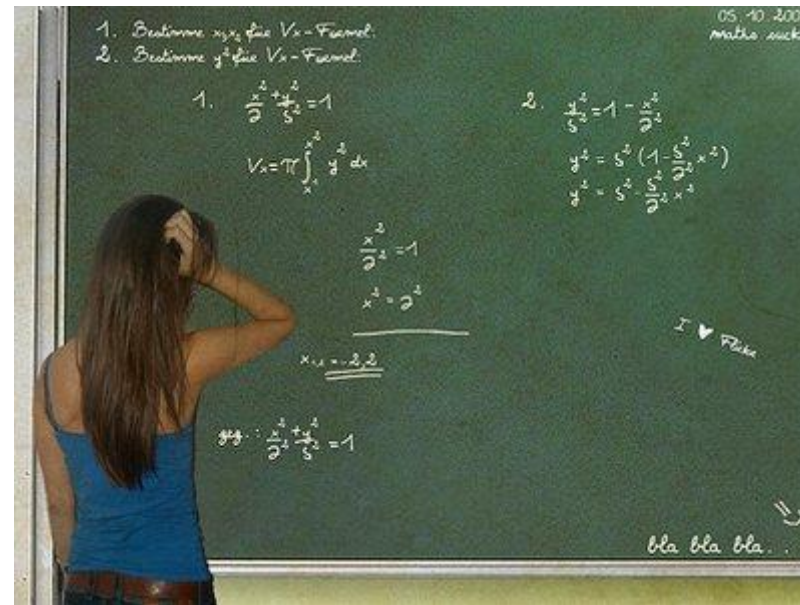 1. Bestimme x₁,x₂ für Vx-Formel.
2. Bestimme y² für Vx-Formel.
05.10.200
maths suck
1. x²/2² + y²/5² = 1
Vx = π ∫ y² dx
x²/2² = 1
x² = 2²
x₁,₂ = -2,2
geg.: x²/2² + y²/5² = 1
2. y²/5² = 1 - x²/2²
y² = 5² (1 - 5²/2² x²)
y² = 5² - 5²/2² x²
I ♥ Flickr
bla bla bla..